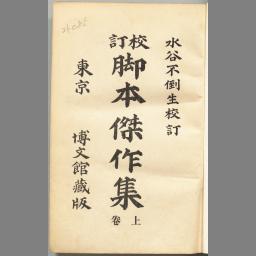 水谷不倒生校訂
校訂
脚本傑作集
上卷
東京
博文館藏版